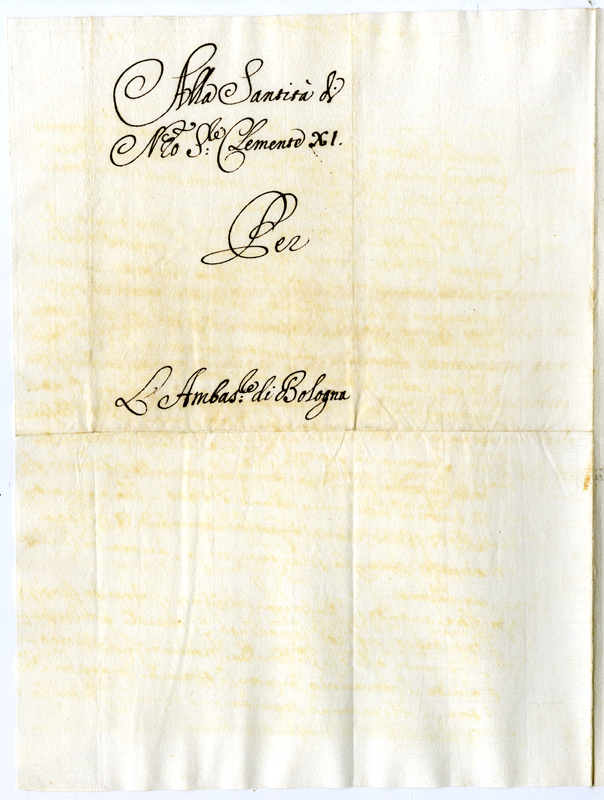 Alla Santità di
N̄ro S.re Clemente XI.
Per
L'Ambas.re di Bologna